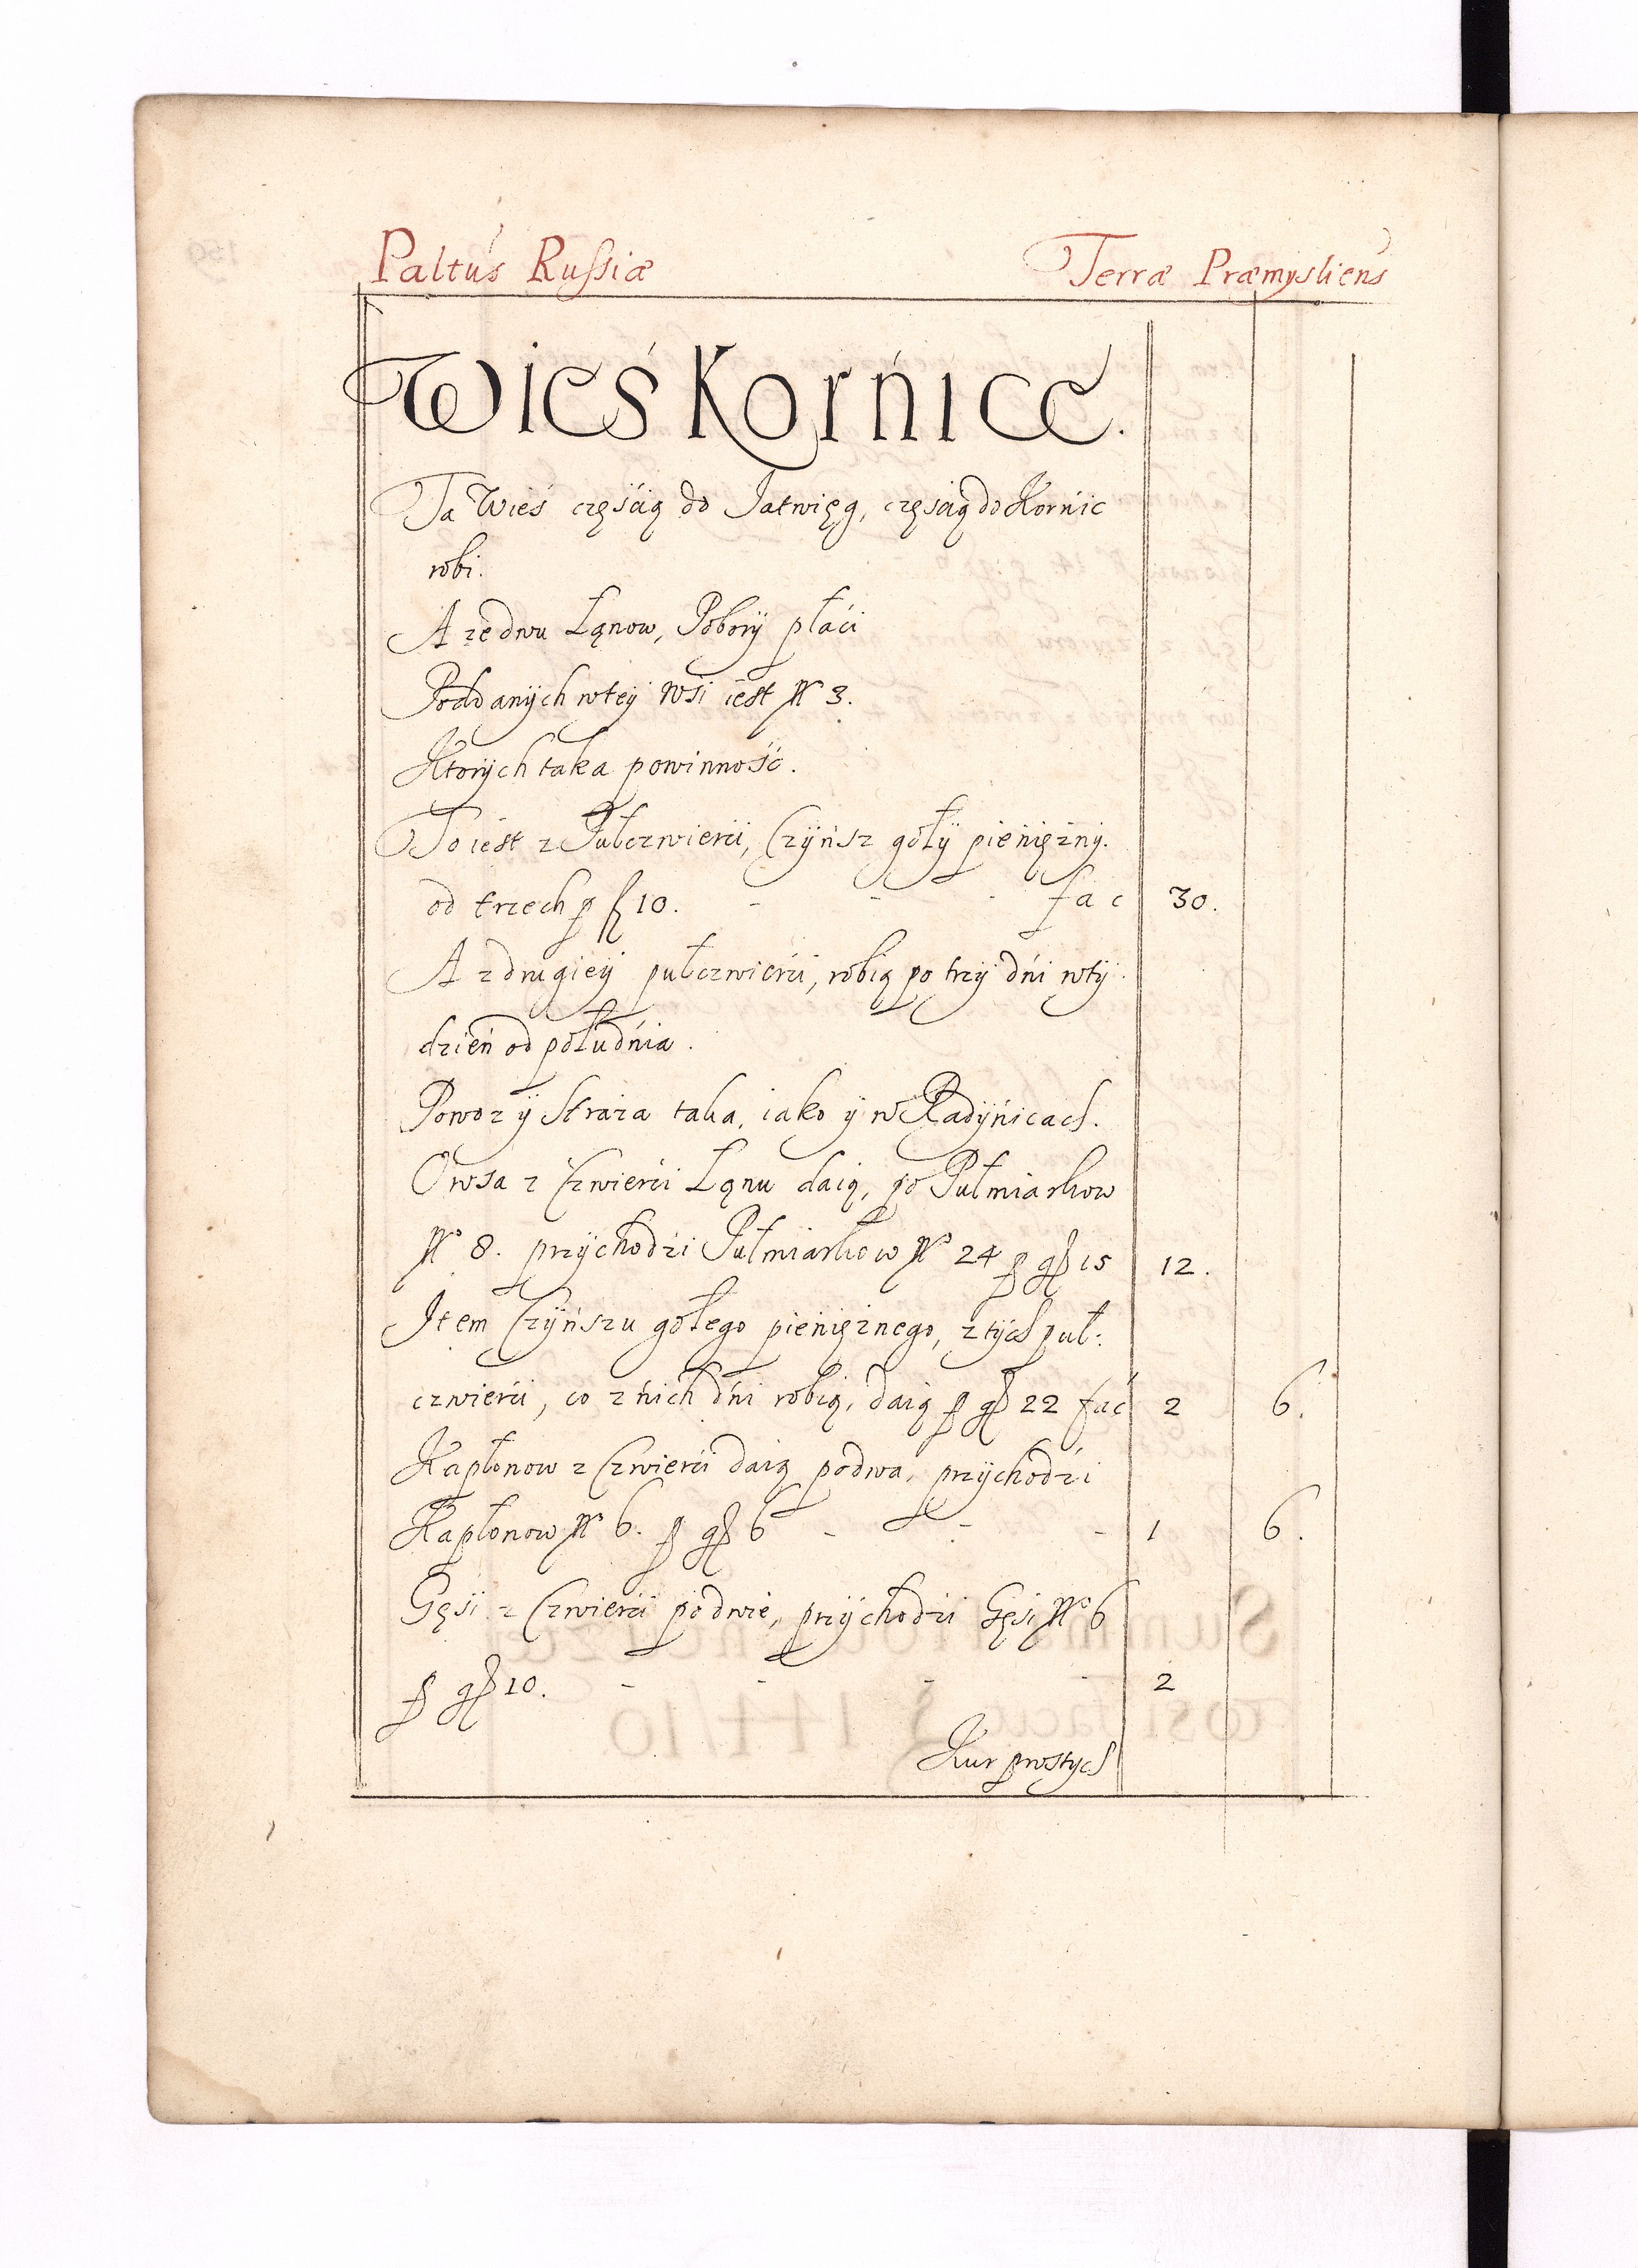 Paltus Russiæ Terræ Præmysliens
Wieś Korńice.
Ta Wieś częśćią do Jatwięg, częśćią do Korńic
robi.
A ze dwu Łąnow, Pobory płaći
Poddanÿch wteÿ Wsi iest No 3.
Ktorÿch taka powinność.
To iest z Pułczwierći, Czÿńsz gołÿ pieńięzny.
od trzech p f 10. - - - fac 30.
A zdrugieÿ pułczwierći, robią po trzÿ dńi wtÿ
dzień od połudńia.
Powoz ÿ Straza taka, iako ÿ w Radÿńicach.
Owsa z Czwierći Łąnu daią, po Pułmiarkow
No 8. przÿchodźi Pułmiarkow No 24 p gł 15 12.
Item Czÿńszu gołego pieńięznego, z tÿch puł:
czwierći, co z ńich dńi robią, daią p gł 22 fać 2 6.
Kapłonow z Czwierći daią podwa, przÿchodźi
Kapłonow No 6. p gł 6 - - - 1 6.
Gęśi z Czwierći podwie, przÿchodźi Gęśi No 6
p gł 10. - - - - 2
Kur prostych